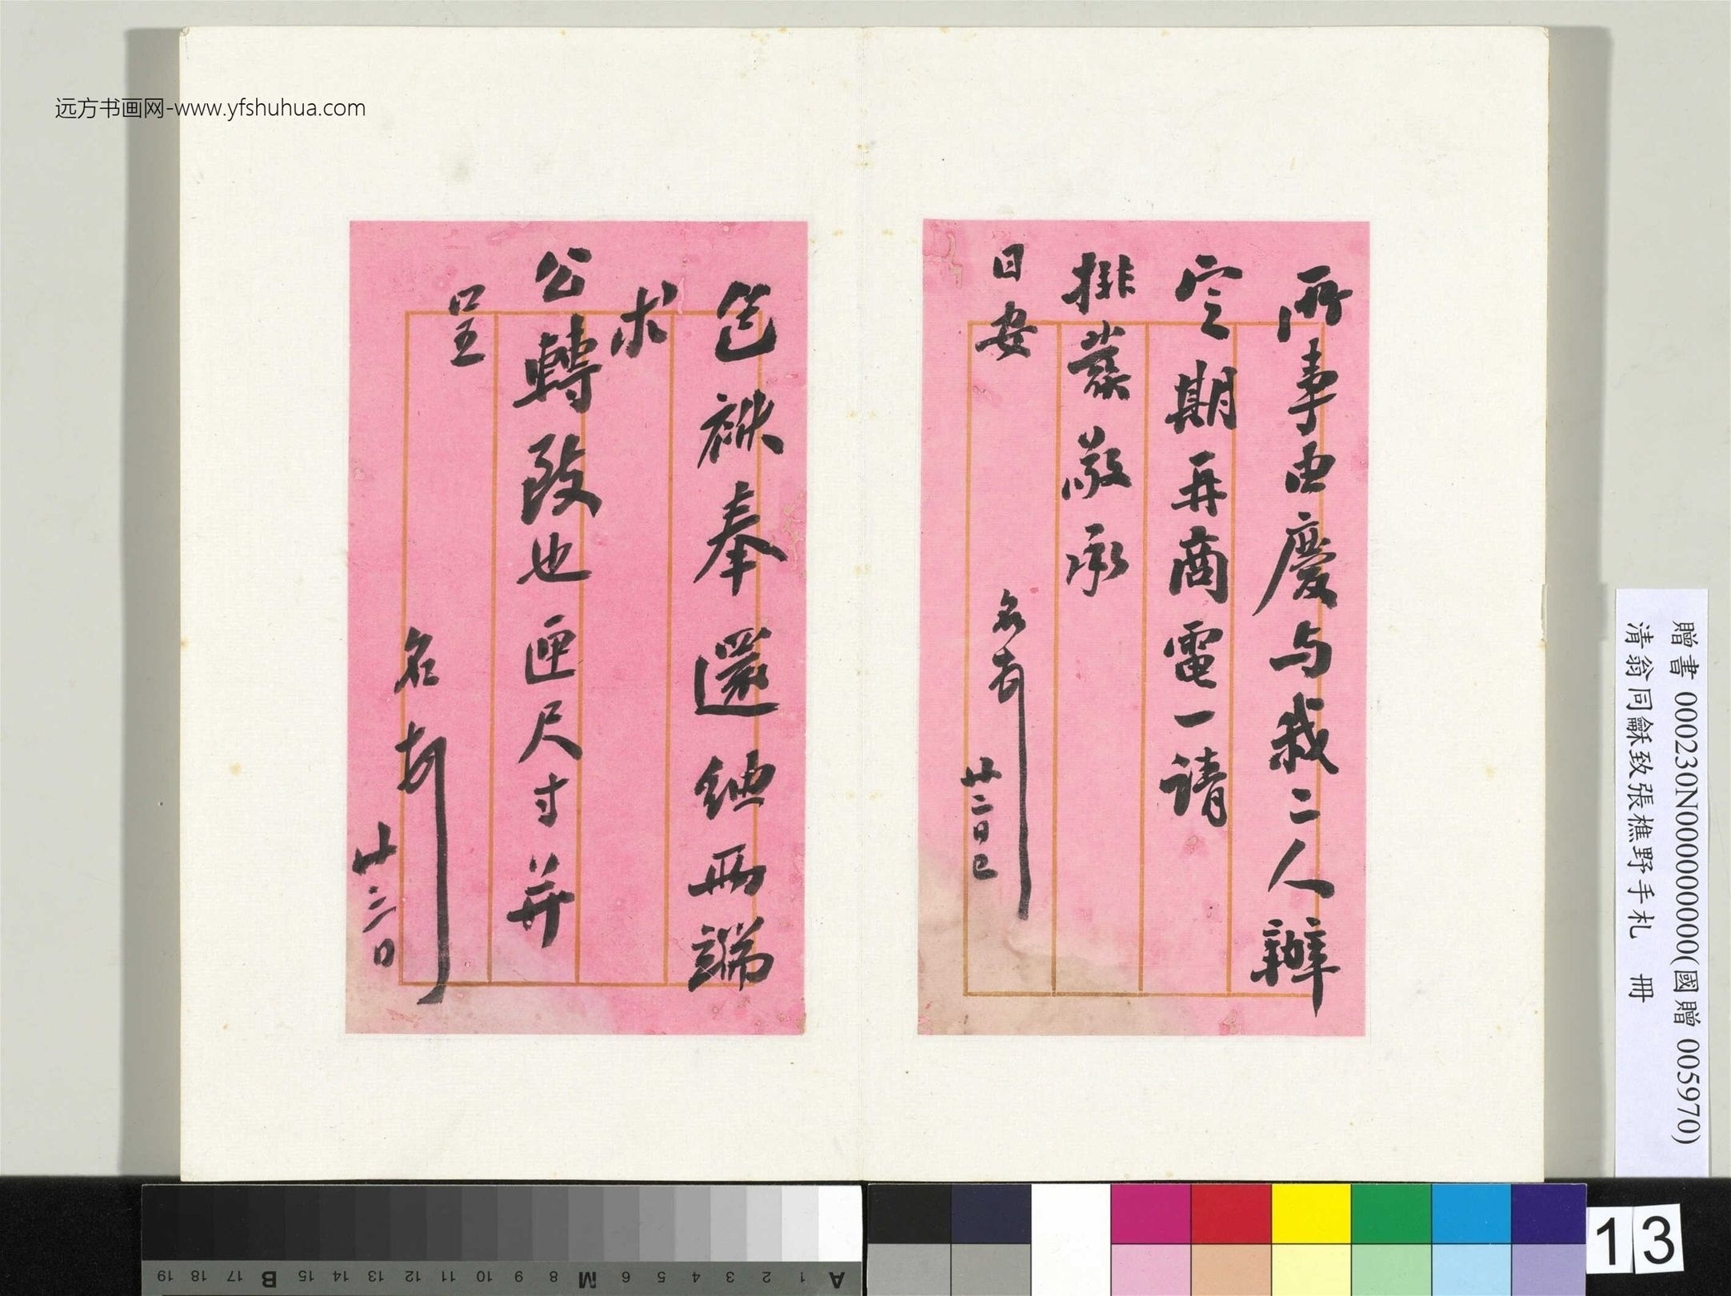 远方书画网-www.yfshuhua.com
兩事由慶与我二人辦
定期再商電一請
排發敬承
日安
名頓
廿二日巳
包袱奉還紬兩端
求
公轉致也匣尺寸并
呈
名頓
廿三日
贈書 000230N000000000(國贈 005970)
清翁同龢致張樵野手札 冊
13
A 1 2 3 4 5 6 M 8 9 10 11 12 13 14 15 B 17 18 19